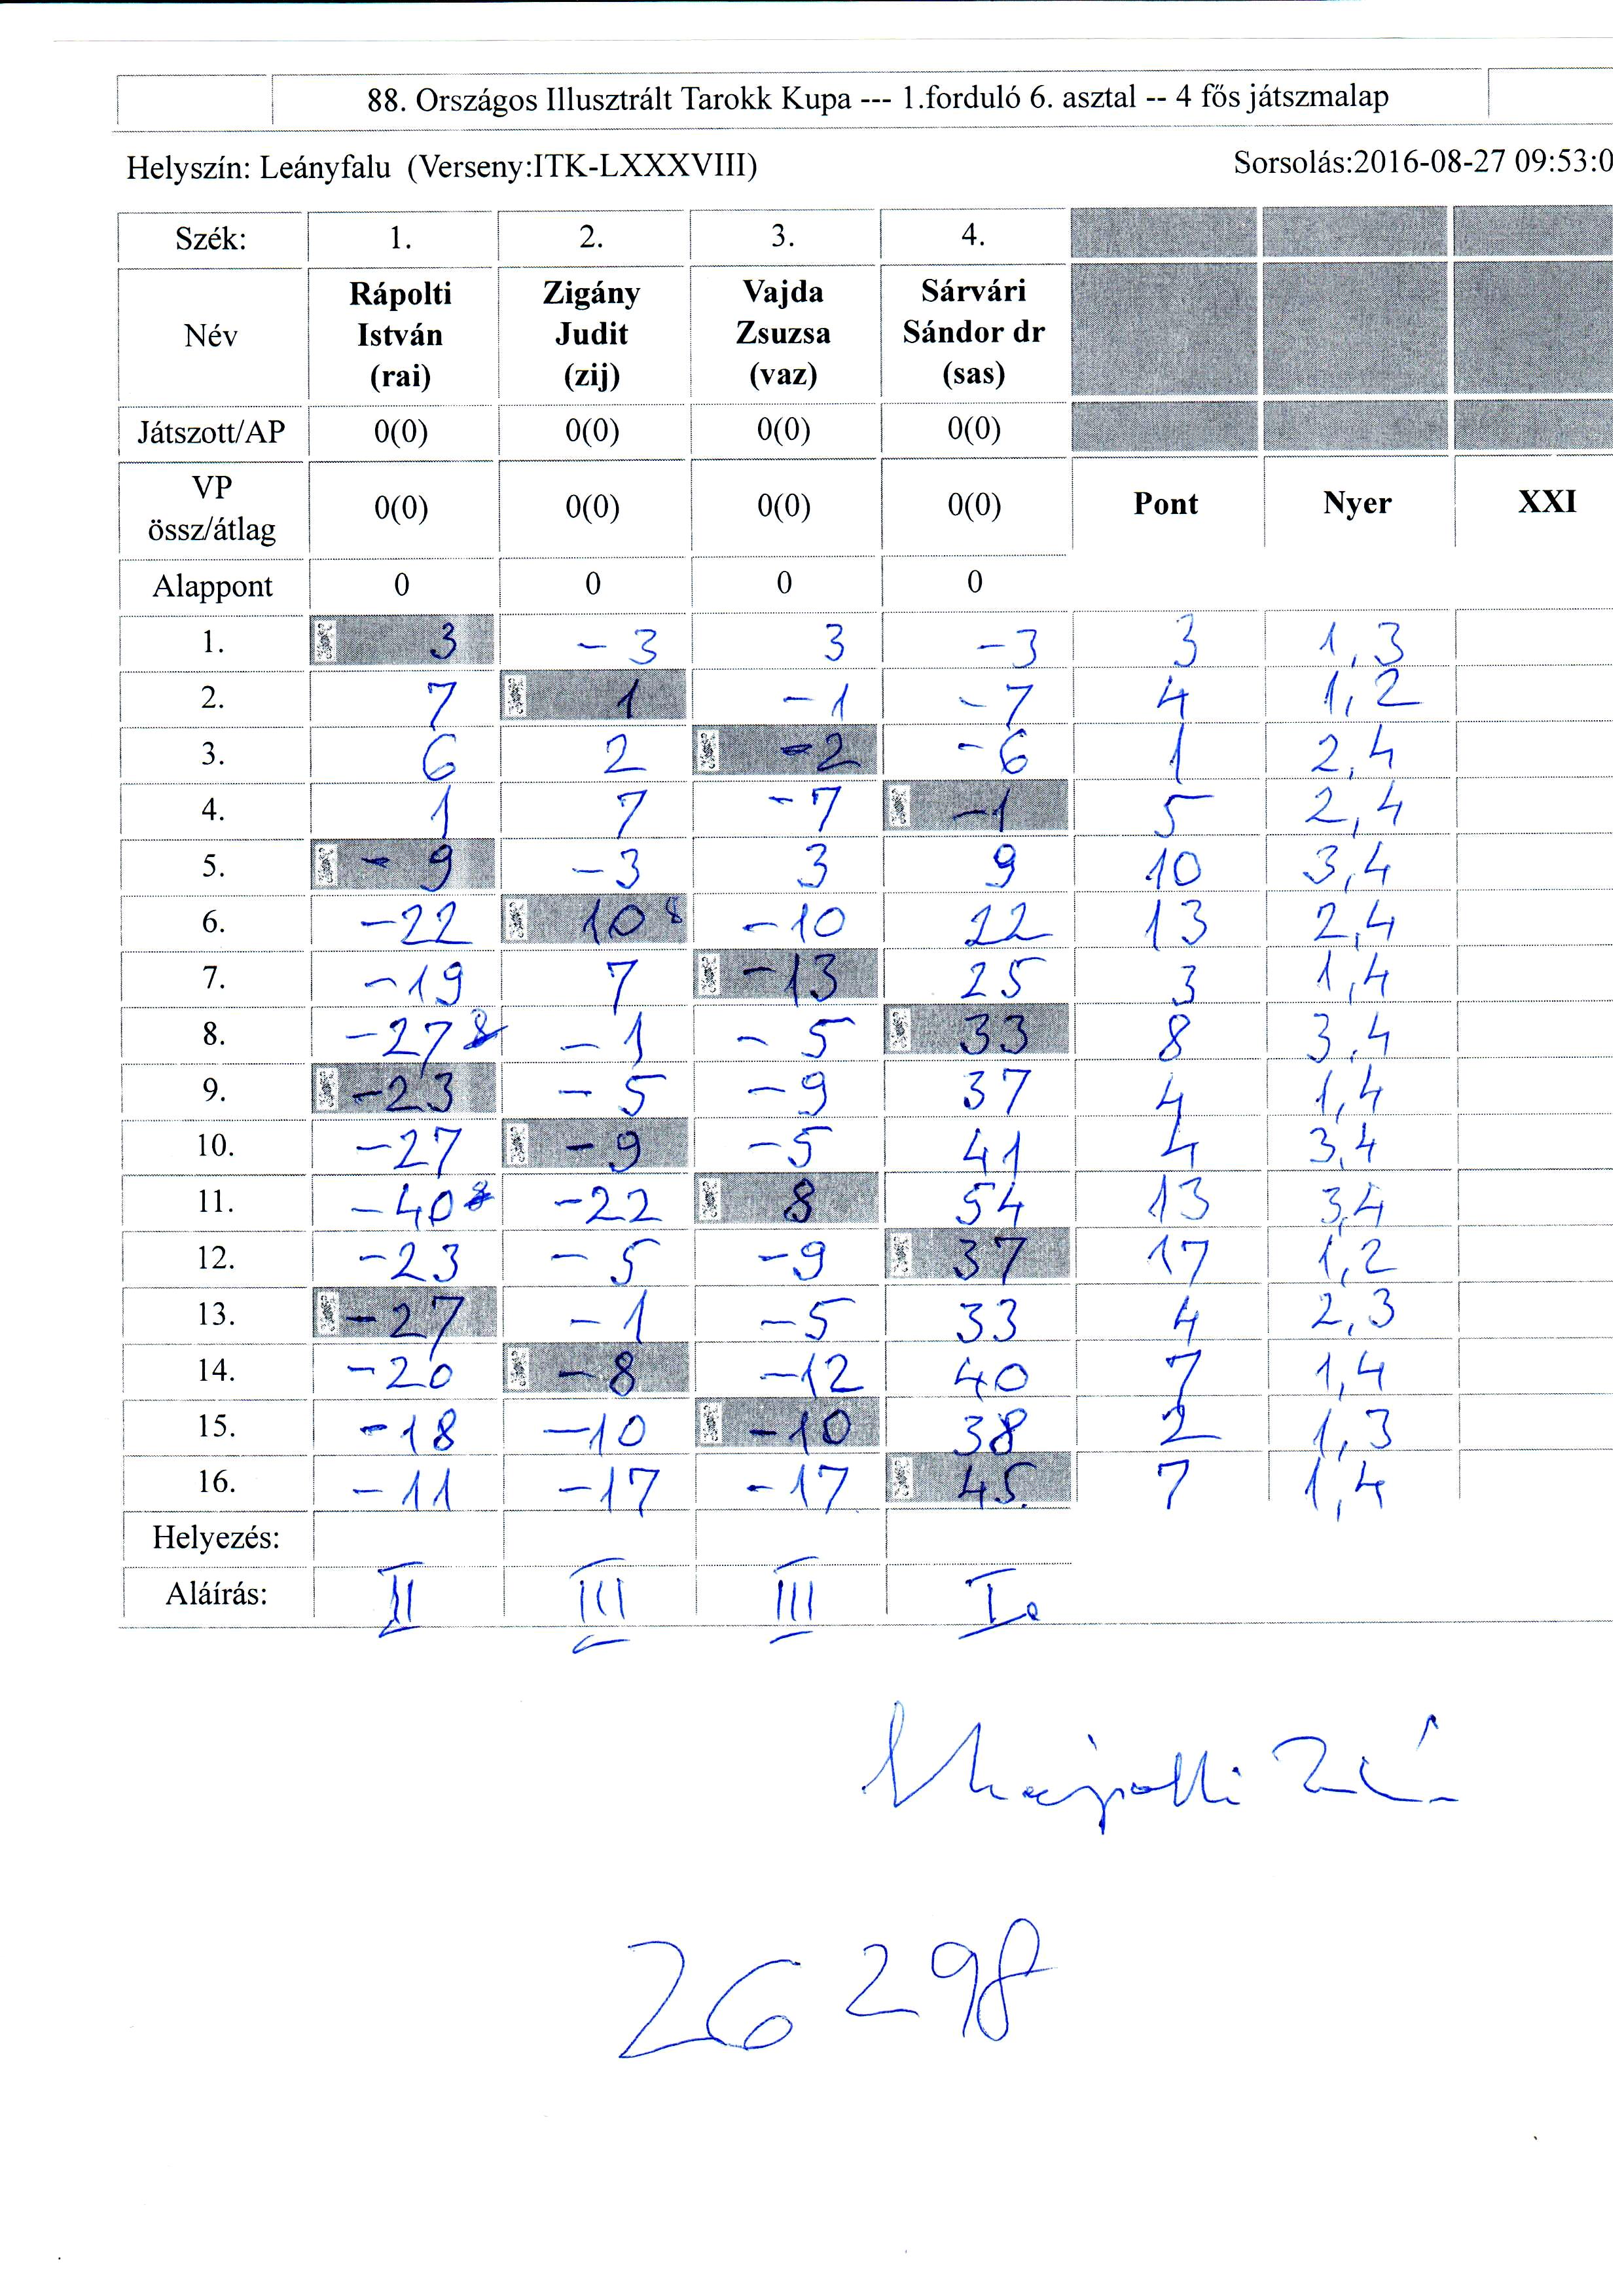 88. Országos Illusztrált Tarokk Kupa --- 1.forduló 6. asztal -- 4 fős játszmalap
Helyszín: Leányfalu (Verseny:ITK-LXXXVIII) Sorsolás:2016-08-27 09:53:0
Szék: 1. 2. 3. 4.
Rápolti Zigány Vajda Sárvári
Név István Judit Zsuzsa Sándor dr
(rai) (zij) (vaz) (sas)
Játszott/AP 0(0) 0(0) 0(0) 0(0)
VP
össz/átlag 0(0) 0(0) 0(0) 0(0) Pont Nyer XXI
Alappont 0 0 0 0
1. 3 -3 3 -3 3 1,3
2. 7 1 -1 -7 4 1,2
3. 6 2 -2 -6 1 2,4
4. 1 7 -7 -1 5 2,4
5. -9 -3 3 9 10 3,4
6. -22 10 8 -10 22 13 2,4
7. -19 7 -13 25 3 1,4
8. -27 -1 -5 33 8 3,4
9. -23 -5 -9 37 4 1,4
10. -27 -9 -5 41 4 3,4
11. -40 -22 8 54 13 3,4
12. -23 -5 -9 37 17 1,2
13. -27 -1 -5 33 4 2,3
14. -20 -8 -12 40 7 1,4
15. -18 -10 -10 38 2 1,3
16. -11 -17 -17 45. 7 1,4
Helyezés:
Aláírás: II III III I.
26298